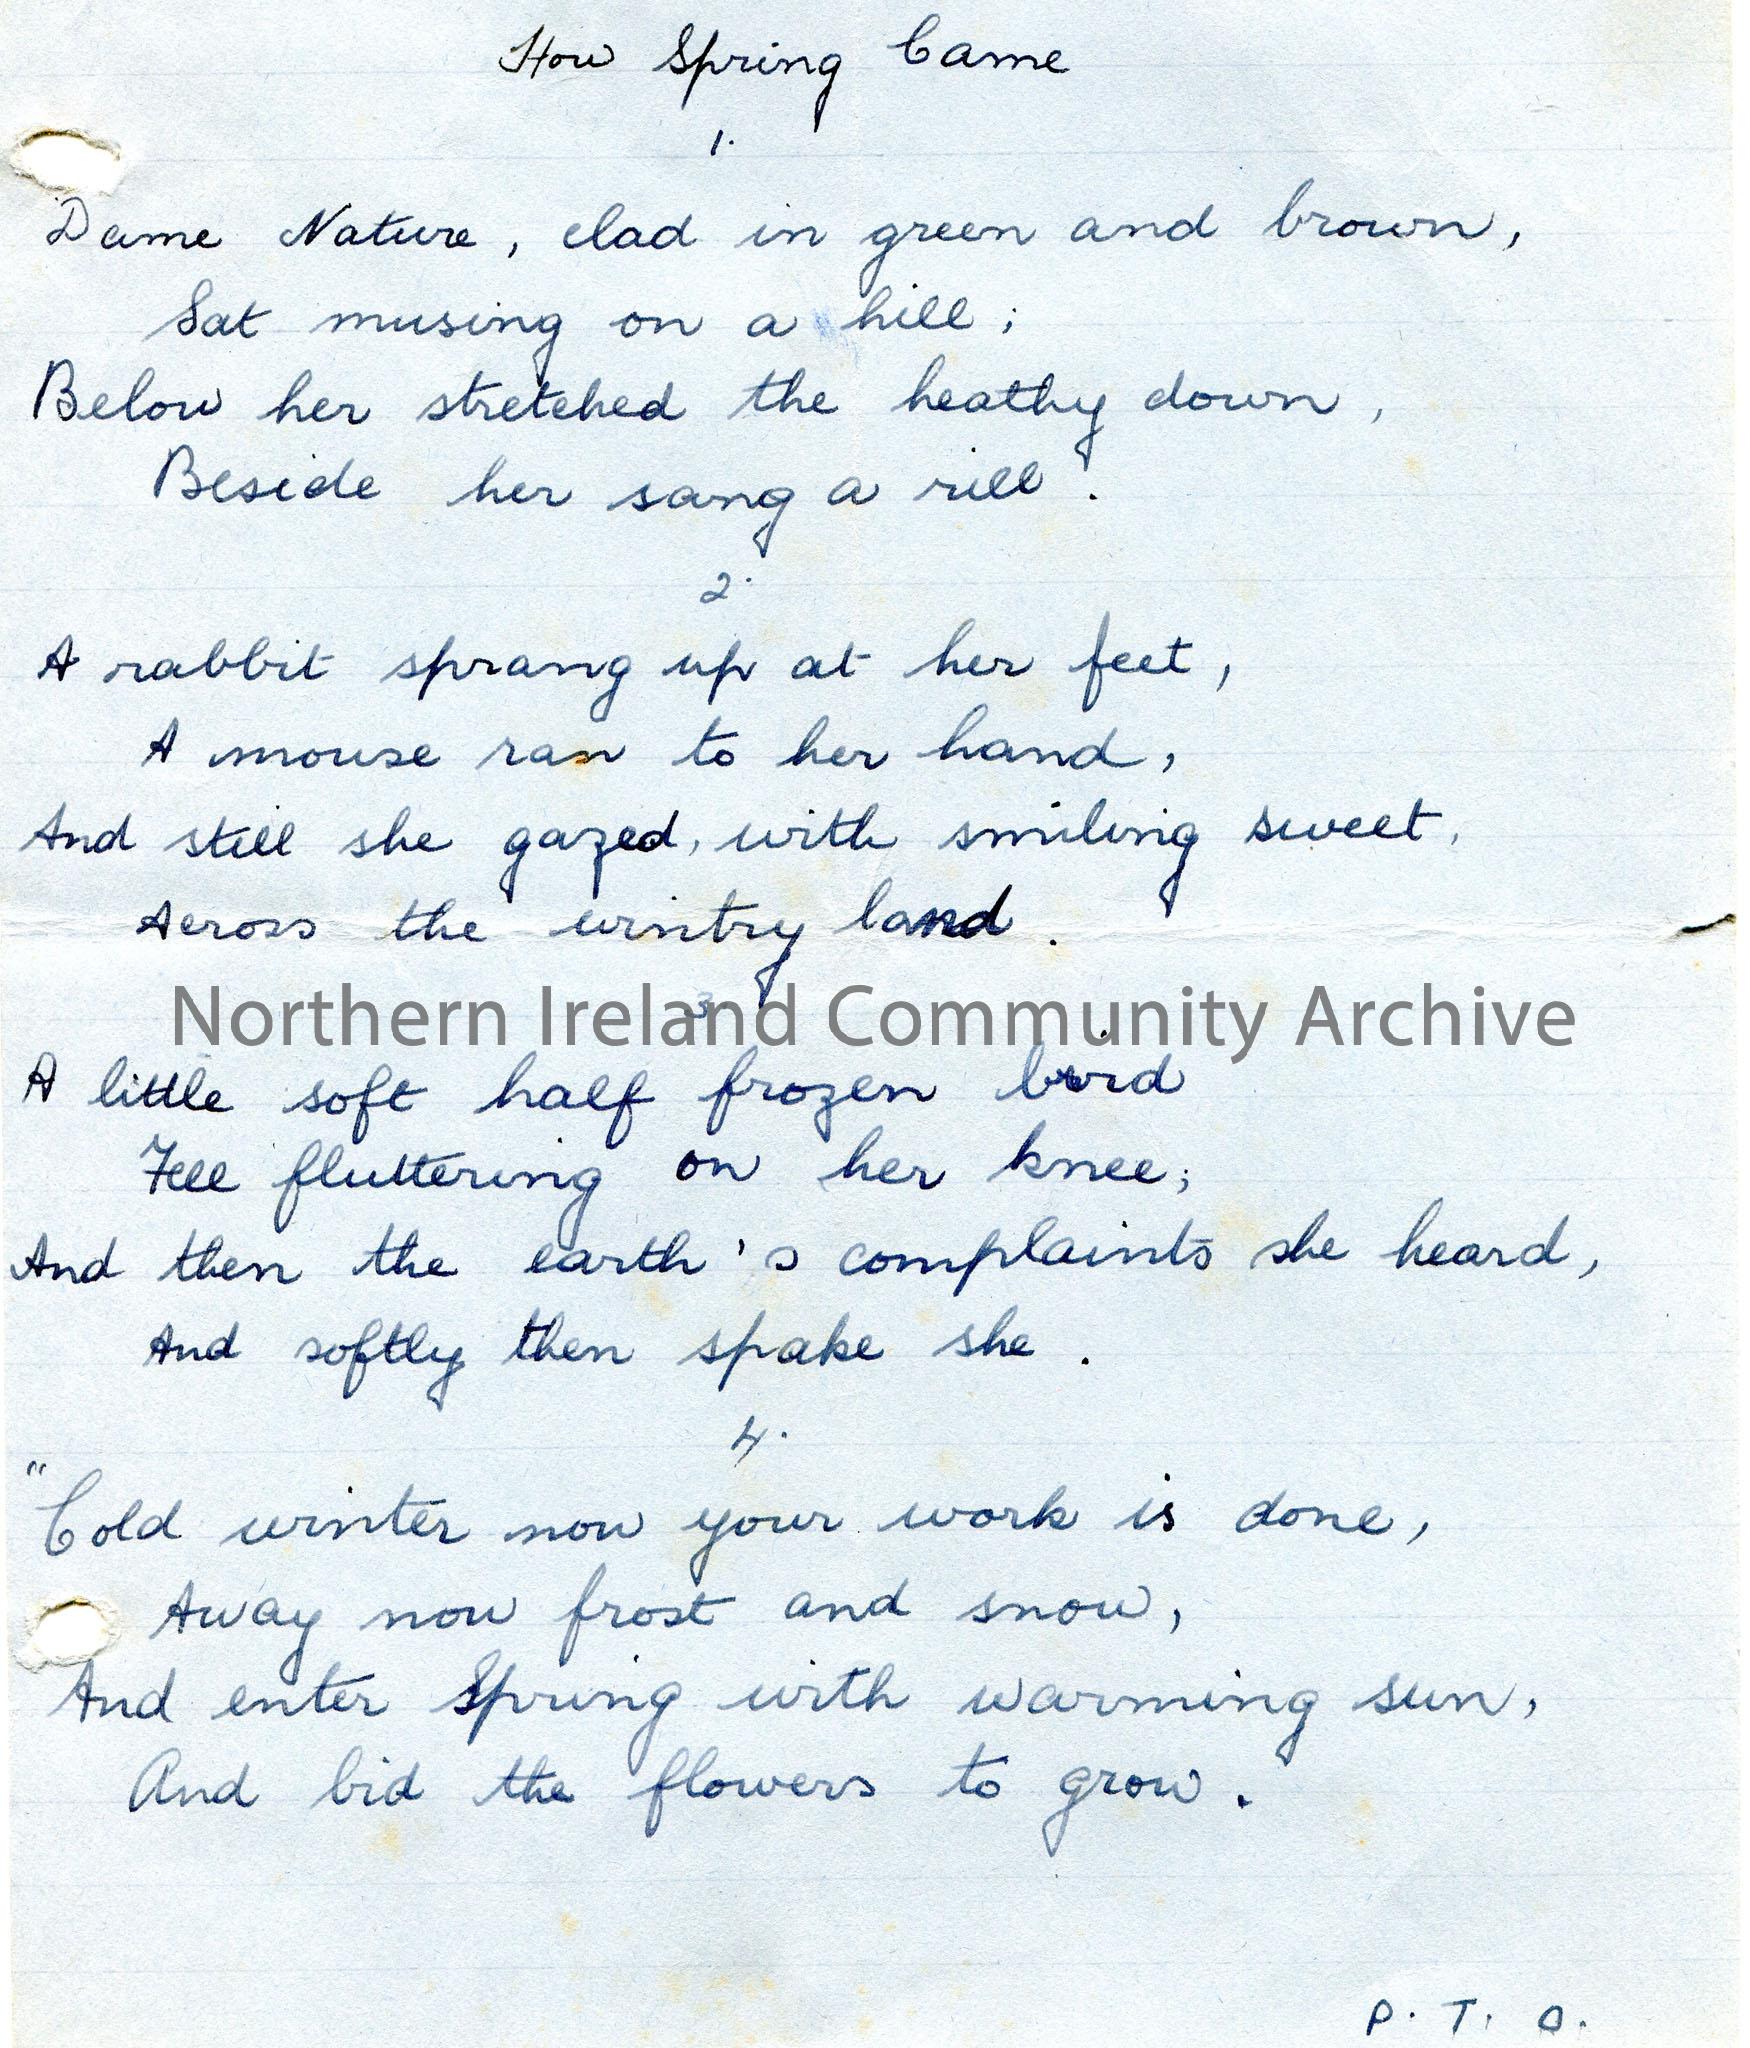 How Spring Came
1.
Dame Nature, clad in green and brown,
Sat musing on a hill;
Below her stretched the heathy down,
Beside her sang a rill.
2.
A rabbit sprang up at her feet,
A mouse ran to her hand,
And still she gazed, with smiling sweet,
Across the wintry land.
3
Northern Ireland Community Archive
A little soft half frozen bird
Fell fluttering on her knee;
And then the earth's complaints she heard,
And softly then spake she.
4.
"Cold winter now your work is done,
Away now frost and snow,
And enter Spring with warming sun,
And bid the flowers to grow.
P. T. O.